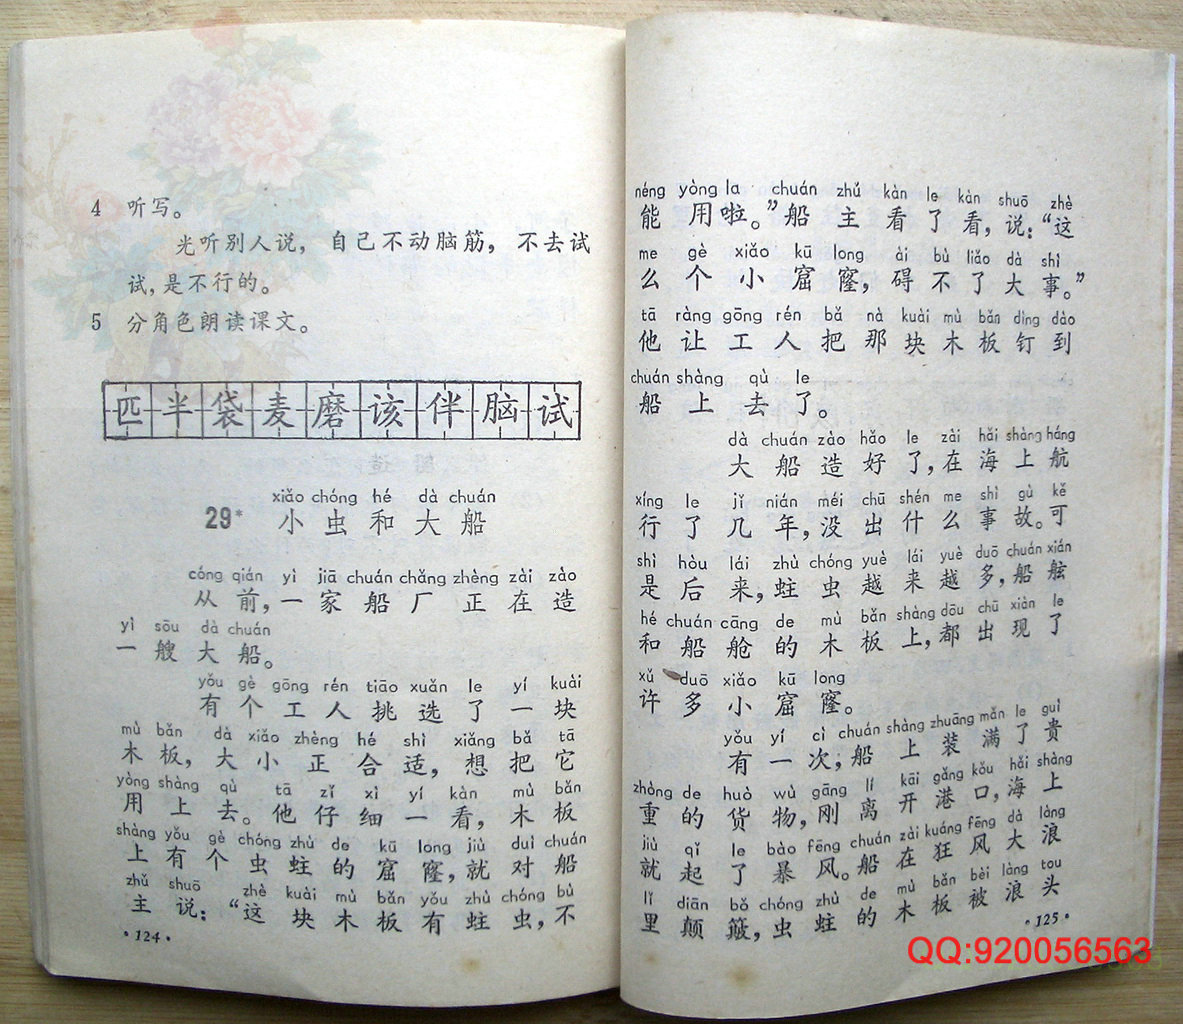 4 听写。
光听别人说， 自己不动脑筋， 不去试
试，是不行的。
5 分角色朗读课文。
匹半袋麦磨该伴脑试
xiǎo chóng hé dà chuán
29* 小虫和大船
cóng qián yì jiā chuán chǎng zhèng zài zào
从前，一家船厂正在造
yì sōu dà chuán
一艘大船。
yǒu gè gōng rén tiāo xuǎn le yí kuài
有个工人挑选了一块
mù bǎn dà xiǎo zhèng hé shì xiǎng bǎ tā
木板，大小正合适，想把它
yòng shàng qù tā zǐ xì yí kàn mù bǎn
用上去。他仔细一看，木板
shàng yǒu gè chóng zhù de kū long jiù duì chuán
上有个虫蛀的窟窿，就对船
zhǔ shuō zhè kuài mù bǎn yǒu zhù chóng bù
主说：“这块木板有蛀虫，不
·124·
néng yòng la chuán zhǔ kàn le kàn shuō zhè
能用啦。”船主看了看，说：“这
me gè xiǎo kū long ài bù liǎo dà shì
么个小窟窿，碍不了大事。”
tā ràng gōng rén bǎ nà kuài mù bǎn dìng dào
他让工人把那块木板钉到
chuán shàng qù le
船上去了。
dà chuán zào hǎo le zài hǎi shàng háng
大船造好了，在海上航
xíng le jǐ nián méi chū shén me shì gù kě
行了几年，没出什么事故。可
shì hòu lái zhù chóng yuè lái yuè duō chuán xián
是后来，蛀虫越来越多，船舷
hé chuán cāng de mù bǎn shàng dōu chū xiàn le
和船舱的木板上，都出现了
xǔ duō xiǎo kū long
许多小窟窿。
yǒu yí cì chuán shàng zhuāng mǎn le guì
有一次，船上装满了贵
zhòng de huò wù gāng lí kāi gǎng kǒu hǎi shàng
重的货物，刚离开港口，海上
jiù qǐ le bào fēng chuán zài kuáng fēng dà làng
就起了暴风。船在狂风大浪
lǐ diān bǒ chóng zhù de mù bǎn bèi làng tou
里颠簸，虫蛀的木板被浪头
·125·
QQ:920056563